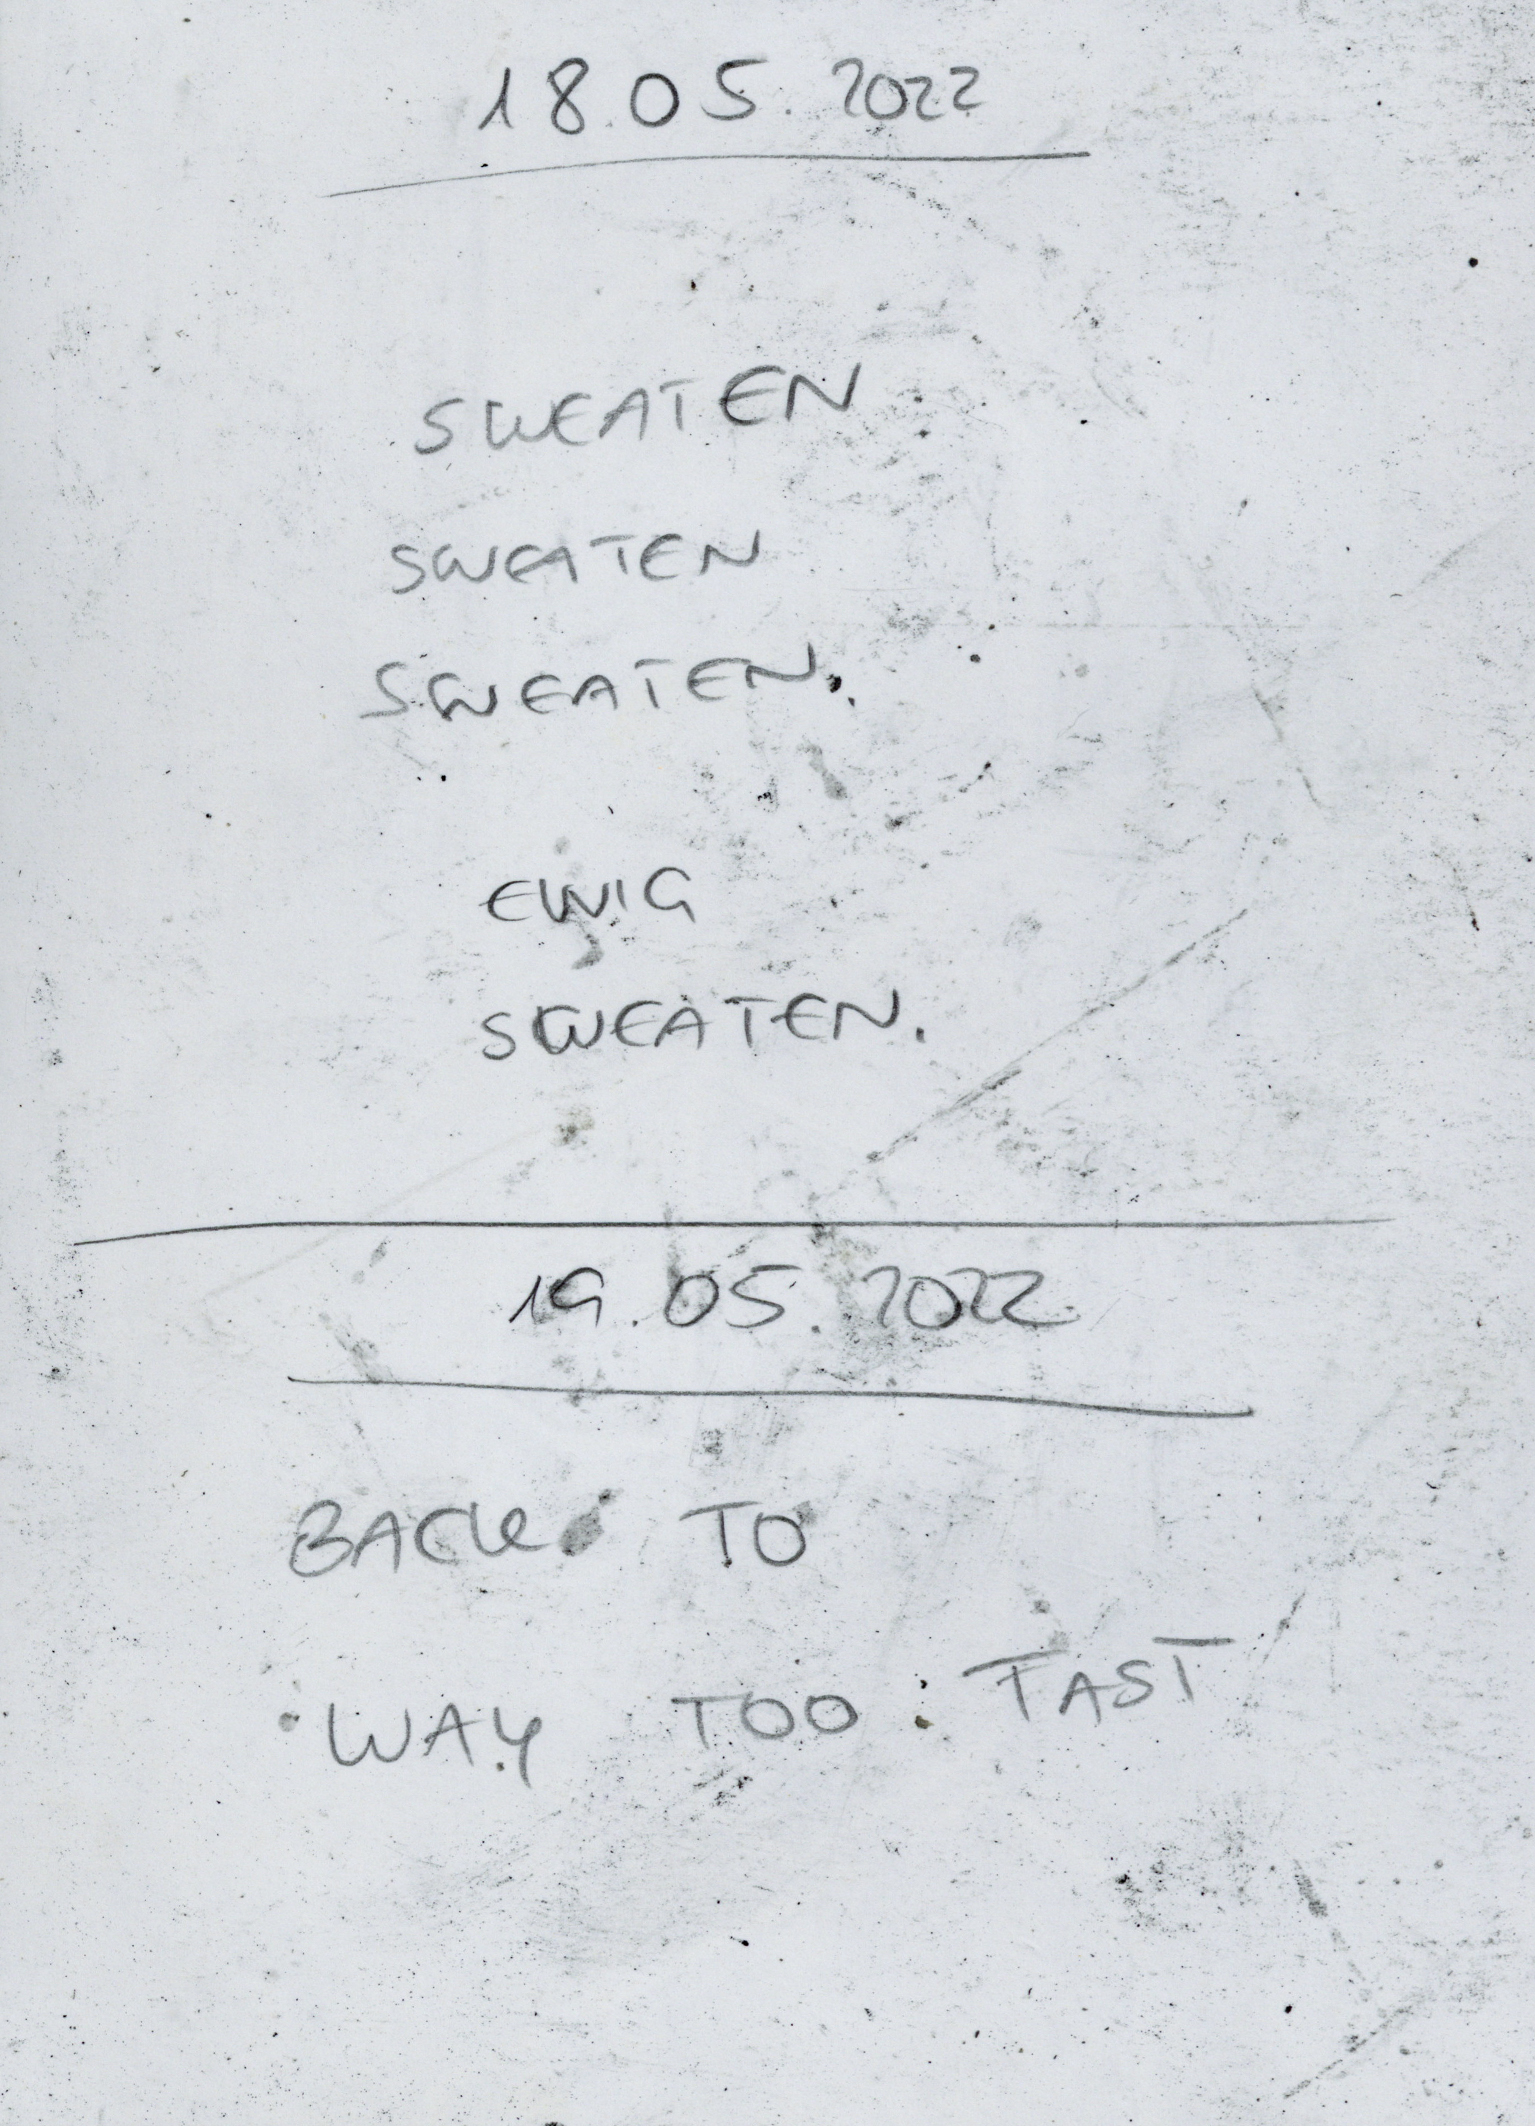 18.05.2022
SWEATEN
SWEATEN
SWEATEN.
EWIG
SWEATEN.
19.05.2022
BACK TO
WAY TOO FAST